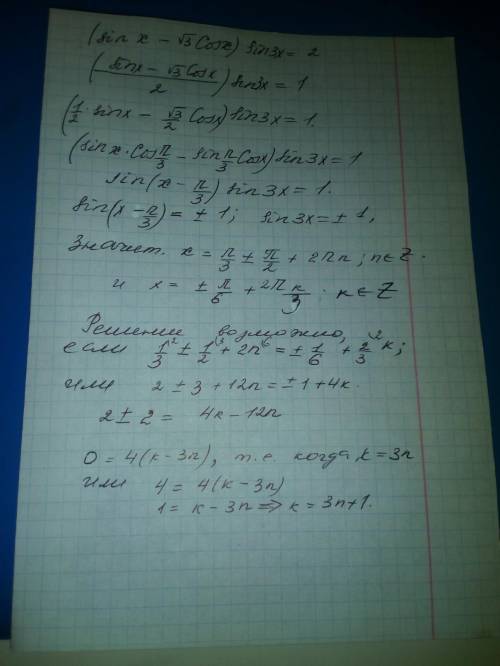 (sin x - √3 Cosx) sin3x = 2
((sinx - √3 Cosx)/2) sin3x = 1
(1/2 · sinx - √3/2 Cosx) sin3x = 1.
(sinx · Cos π/3 - sin π/3 Cosx) sin3x = 1
sin(x - π/3) sin3x = 1.
sin(x - π/3) = ± 1; sin3x = ± 1,
Значит. x = π/3 ± π/2 + 2πn; n ∈ Z.
и x = ± π/6 + 2πk/3 ; k ∈ Z
Решение возможно,
если 1/3 ² ± 1/2 ³ + 2n ⁶ = ± 1/6 + 2/3 ² k;
или 2 ± 3 + 12n = ± 1 + 4k.
2 ± 2 = 4k - 12n
0 = 4(k - 3n), т.е. когда k = 3n
или 4 = 4(k - 3n)
1 = k - 3n ⇒ k = 3n + 1.